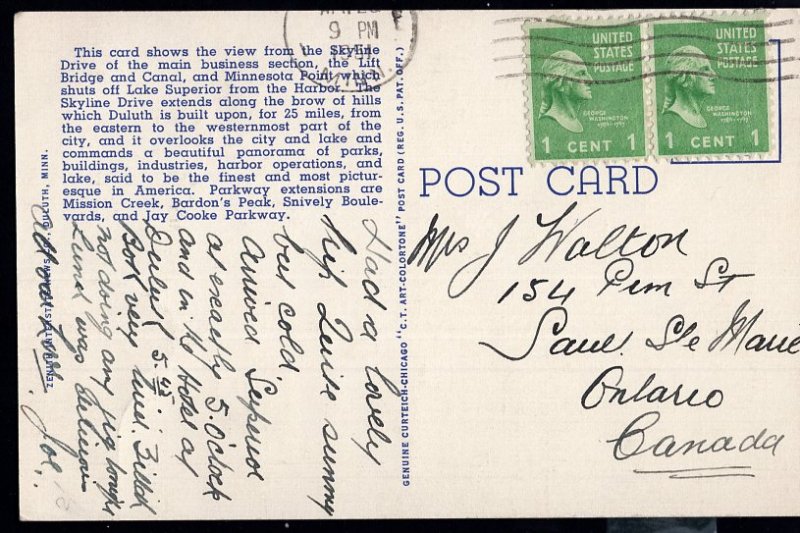 This card shows the view from the Skyline
Drive of the main business section, the Lift
Bridge and Canal, and Minnesota Point which
shuts off Lake Superior from the Harbor. The
Skyline Drive extends along the brow of hills
which Duluth is built upon, for 25 miles, from
the eastern to the westernmost part of the
city, and it overlooks the city and lake and
commands a beautiful panorama of parks,
buildings, industries, harbor operations, and
lake, said to be the finest and most pictur-
esque in America. Parkway extensions are
Mission Creek, Bardon's Peak, Snively Boule-
vards, and Jay Cooke Parkway.
ZENITH INTERSTATE NEWS CO., DULUTH, MINN.
Had a lovely
trip Quite sunny
but cold.
Arrived Superior
at exactly 5 O'clock
and in the Hotel at
Duluth 5.45.
Both very tired. Bill
not doing any
Lunch was
Joe.
GENUINE CURTEICH-CHICAGO "C.T. ART-COLORTONE" POST CARD (REG. U.S. PAT. OFF.)
9 PM
UNITED
STATES
POSTAGE
GEORGE
WASHINGTON
1 CENT 1
UNITED
STATES
POSTAGE
GEORGE
WASHINGTON
1 CENT 1
POST CARD
Mrs J Walton
154 Pim St
Saul Ste Marie
Ontario
Canada